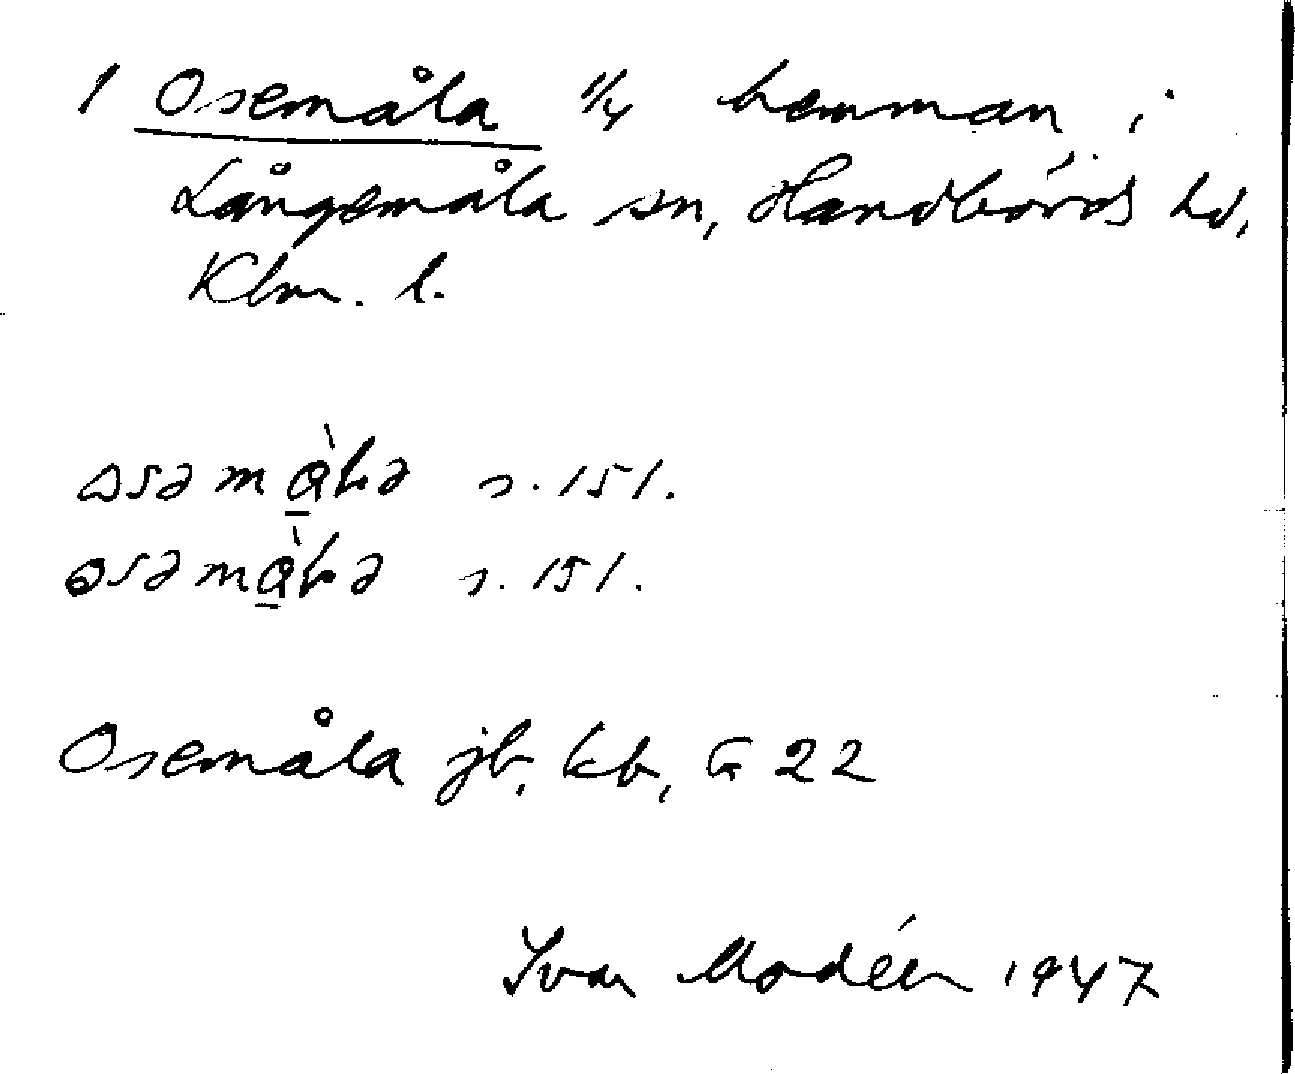 1 Osemåla 1/4 hemman i
Långemåla sn, Handbörds hd,
Klm. l.
s. 151.
s. 151.
Osemåla jb, kb, G 22
Ivar Modéer 1947